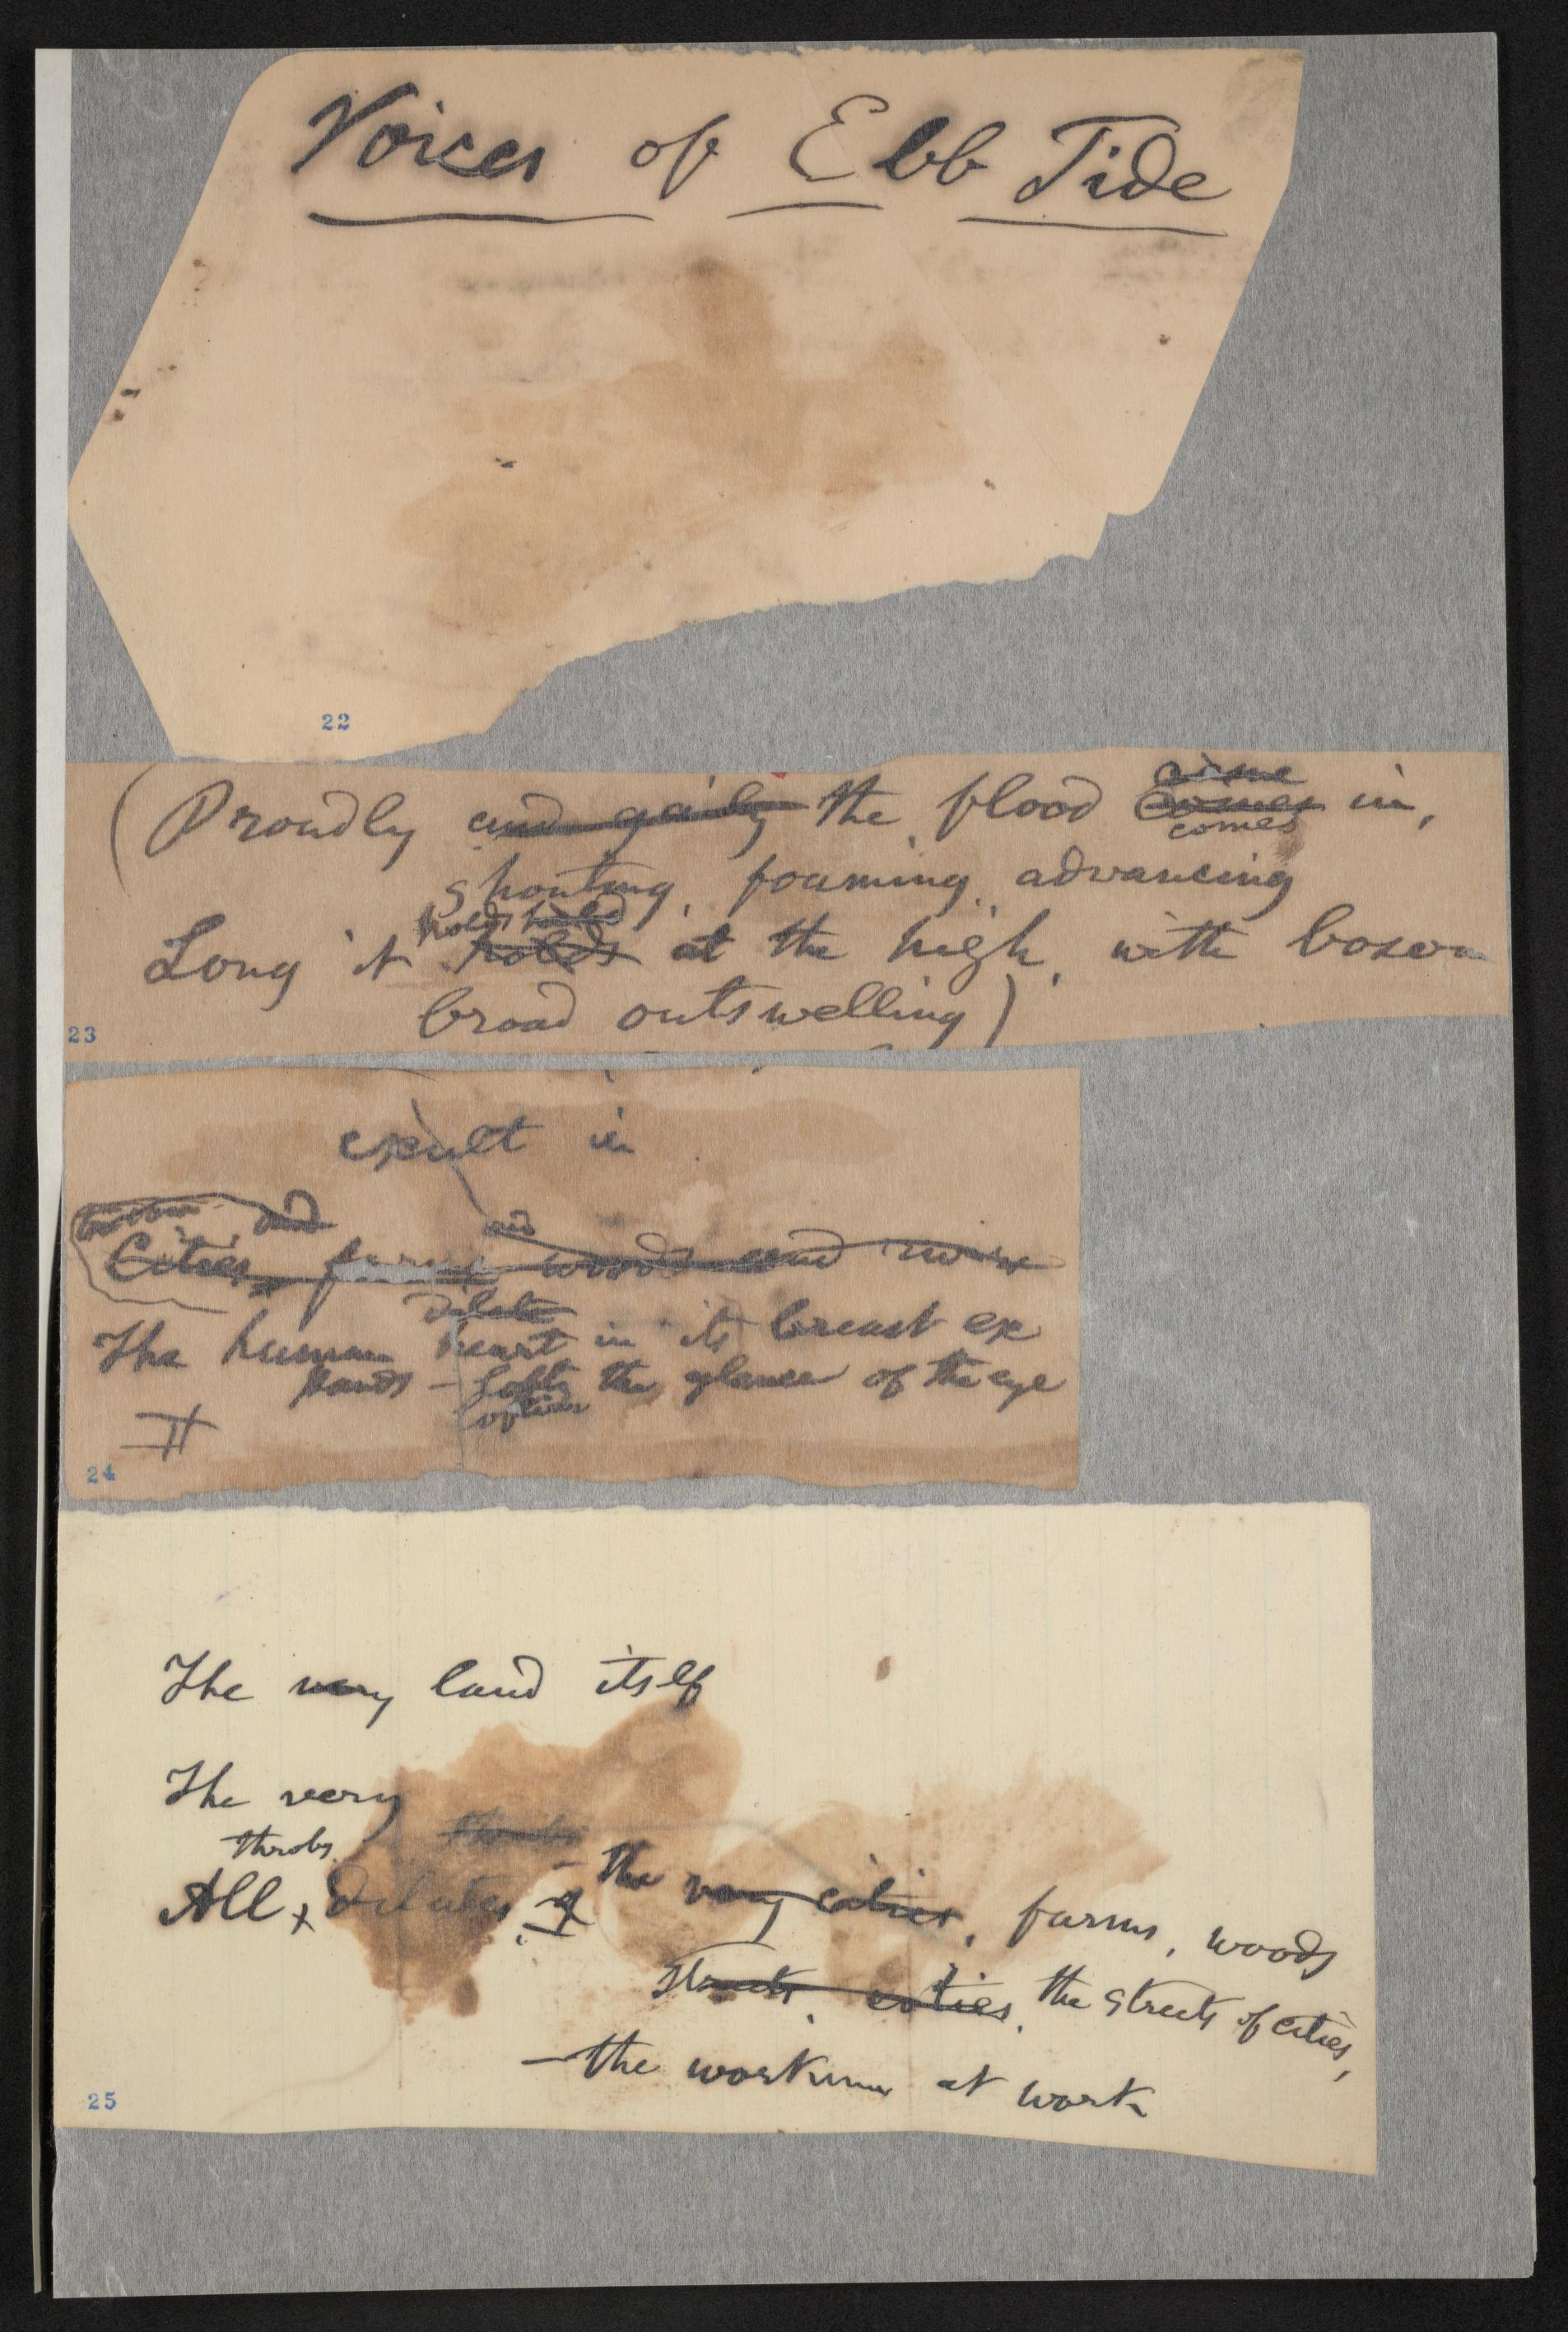 Voices of Ebb Tide
22
(Proudly and gaily the flood comes in,
comes
shouting, foaming, advancing
holds held
Long it holds at the high, with bosom
broad outswelling)
23
exult in
and
and
Cities, farms, woods and
dilate
The human heart in its breast ex
pands — the glance of the eye
24
The very land itself
The very
throbs
All, dilates, the very cities, farms, woods
Streets, cities, the streets of cities,
— the workmen at work
25